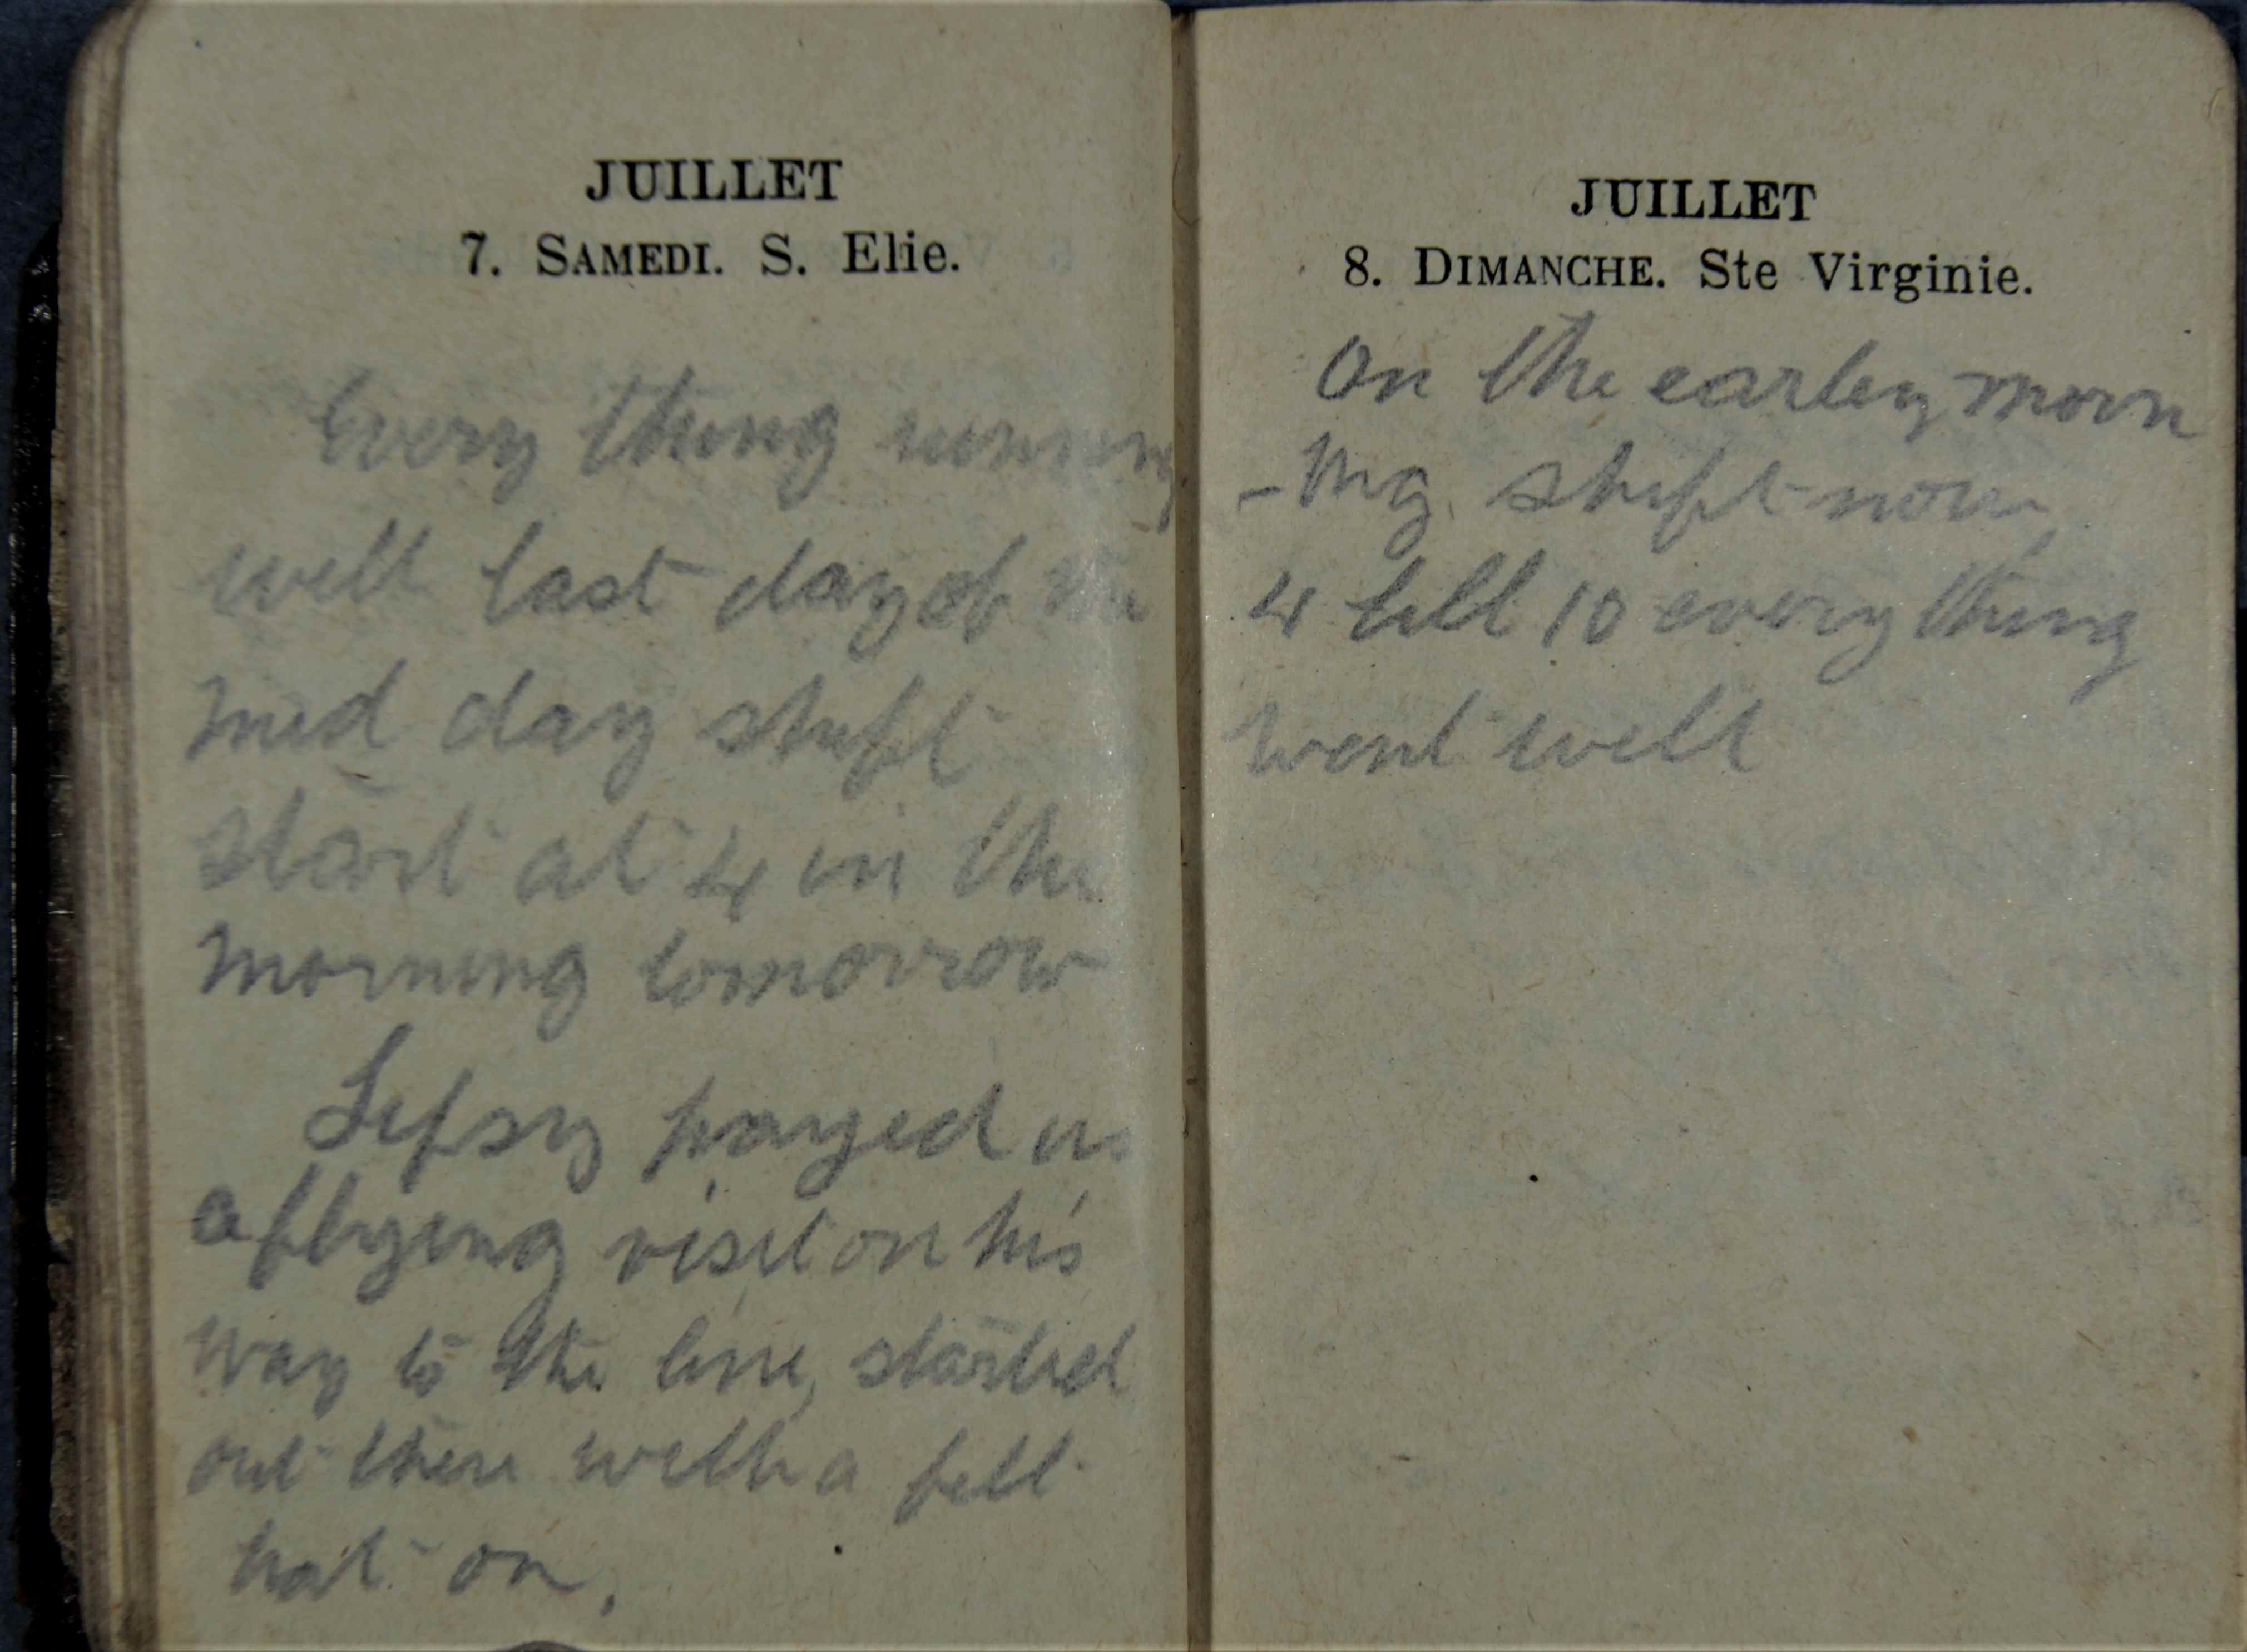 JUILLET
7. SAMEDI. S. Elie.
Every thing running
well last day of the
mid day shift
start at 4 in the
morning tomorrow
payed us
a flying visit on his
way to the line, started
out there with a felt
hat on.
JUILLET
8. DIMANCHE. Ste Virginie.
On the earley morn
-ing shift now
4 till 10 every thing
went well